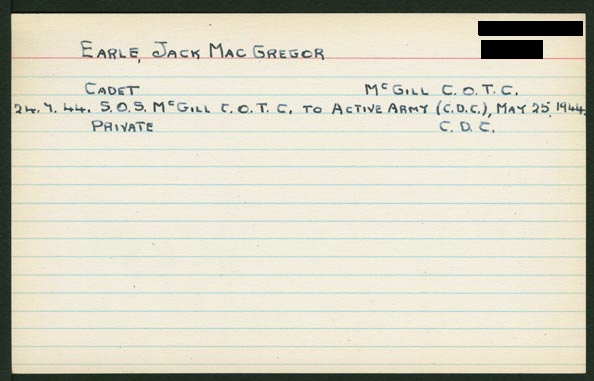 EARLE, JACK MAC GREGOR
CADET McGILL C.O.T.C.
24.7.44. S.O.S. McGILL C.O.T.C. TO ACTIVE ARMY (C.D.C.), MAY 25, 1944.
PRIVATE C.D.C.